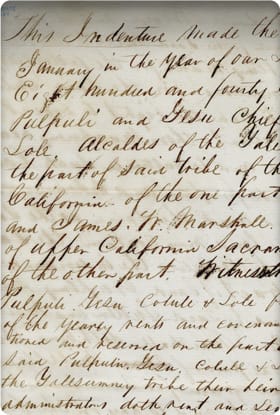 This Indenture made the
January in the year of our
Eight hundred and fourty
Pulpuli and Gesu Chief
Lole. Alcaldes of the Yale
the part of said tribe of th
California of the one part
and James. W. Marshall.
of upper California Sacram
of the other part. Witnesseth
Pulpuli. Gesu. Colule & Lole
of the yearly rents and covenan
tioned and reserved on the part
said Pulpuli, Gesu. Colule &
the Yallesummey tribe their hei
administrators doth rent and